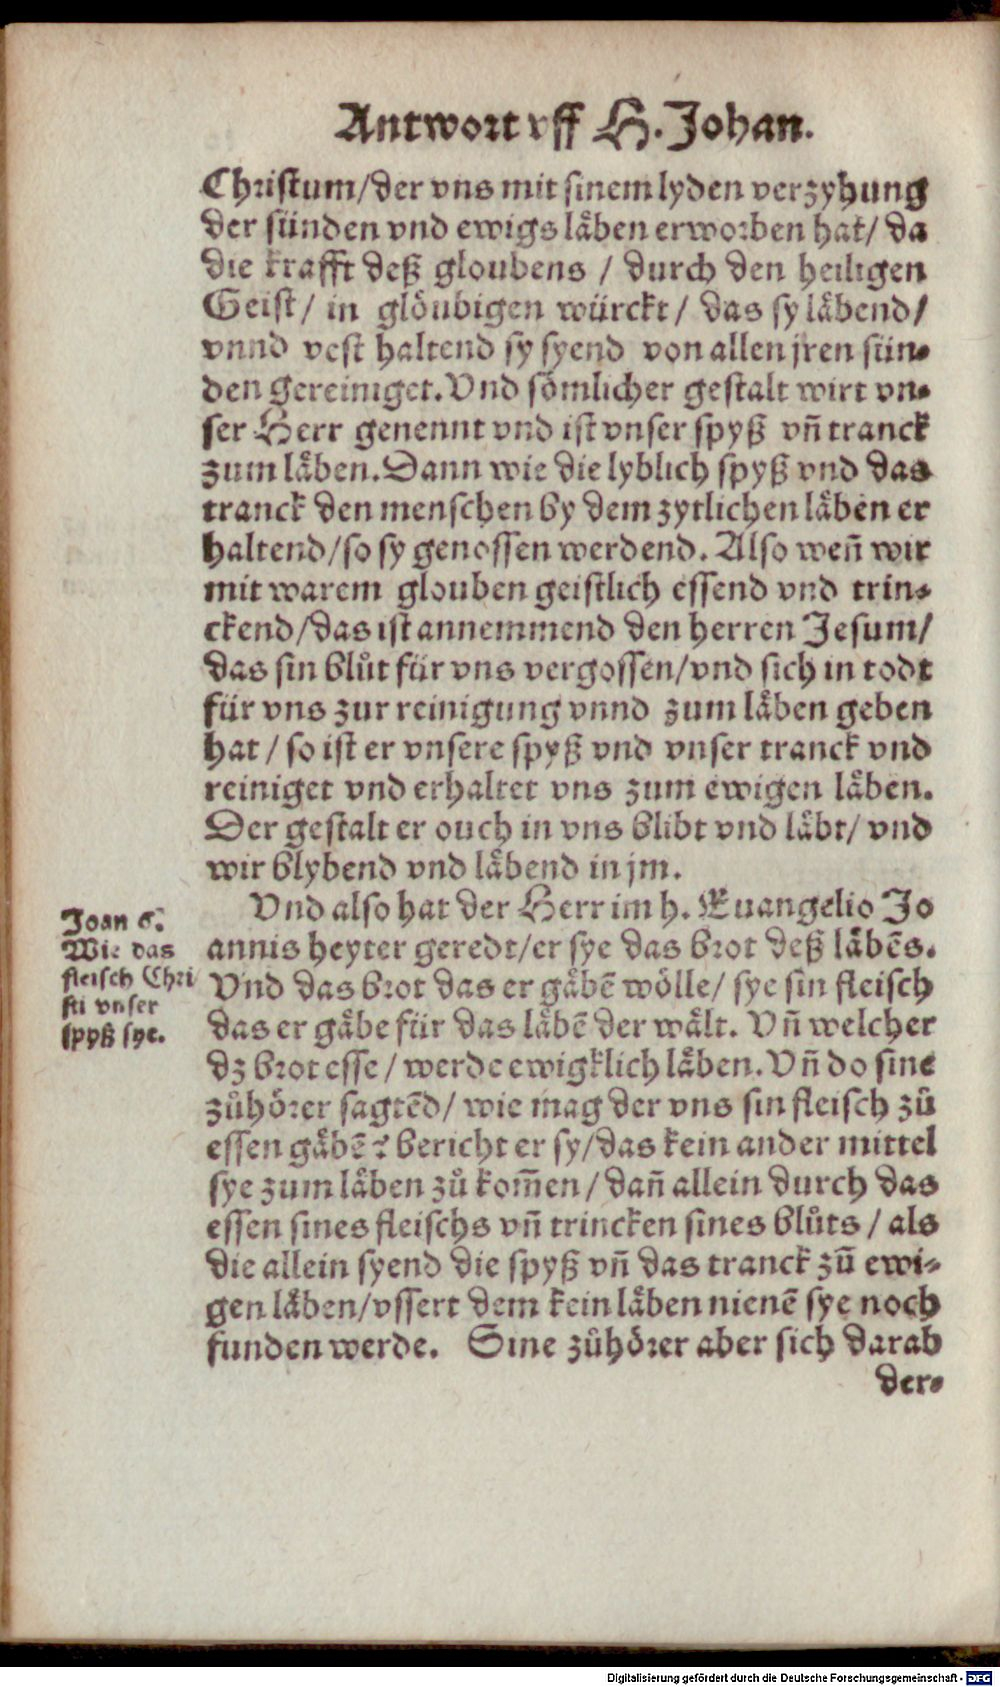 Antwort vff H. Johan.
Christum/der vns mit sinem lyden verzyhung
der sünden vnd ewigs läben erworben hat/ da
die krafft deß gloubens / durch den heiligen
Geist/ in glöubigen würckt/ das sy läbend/
vnnd vest haltend sy syend von allen jren sün-
den gereiniget. Vnd sömlicher gestalt wirt vn-
ser Herr genennt vnd ist vnser spyß vn̄ tranck
zum läben. Dann wie die lyblich spyß vnd das
tranck den menschen by dem zytlichen läben er
haltend/so sy genossen werdend. Also wen̄ wir
mit warem glouben geistlich essend vnd trin-
ckend/das ist annemmend den herren Jesum/
das sin blůt für vns vergossen/vnd sich in todt
für vns zur reinigung vnnd zum läben geben
hat / so ist er vnsere spyß vnd vnser tranck vnd
reiniget vnd erhaltet vns zum ewigen läben.
Der gestalt er ouch in vns blibt vnd läbt/ vnd
wir blybend vnd läbend in jm.
Vnd also hat der Herr im h. Euangelio Jo
annis heyter geredt/er sye das brot deß läbēs.
Vnd das brot das er gäbē wölle/ sye sin fleisch
das er gäbe für das läbē der wält. Vn̄ welcher
dz brot esse / werde ewigklich läben. Vn̄ do sine
zůhörer sagtēd/ wie mag der vns sin fleisch zů
essen gäbē? bericht er sy/das kein ander mittel
sye zum läben zů kom̄en / dan̄ allein durch das
essen sines fleischs vn̄ trincken sines blůts / als
die allein syend die spyß vn̄ das tranck zū ewi-
gen läben/vssert dem kein läben nienē sye noch
funden werde. Sine zůhörer aber sich darab
der-
Joan 6.
Wie das
fleisch Chri
sti vnser
spyß sye.
Digitalisierung gefördert durch die Deutsche Forschungsgemeinschaft - DFG